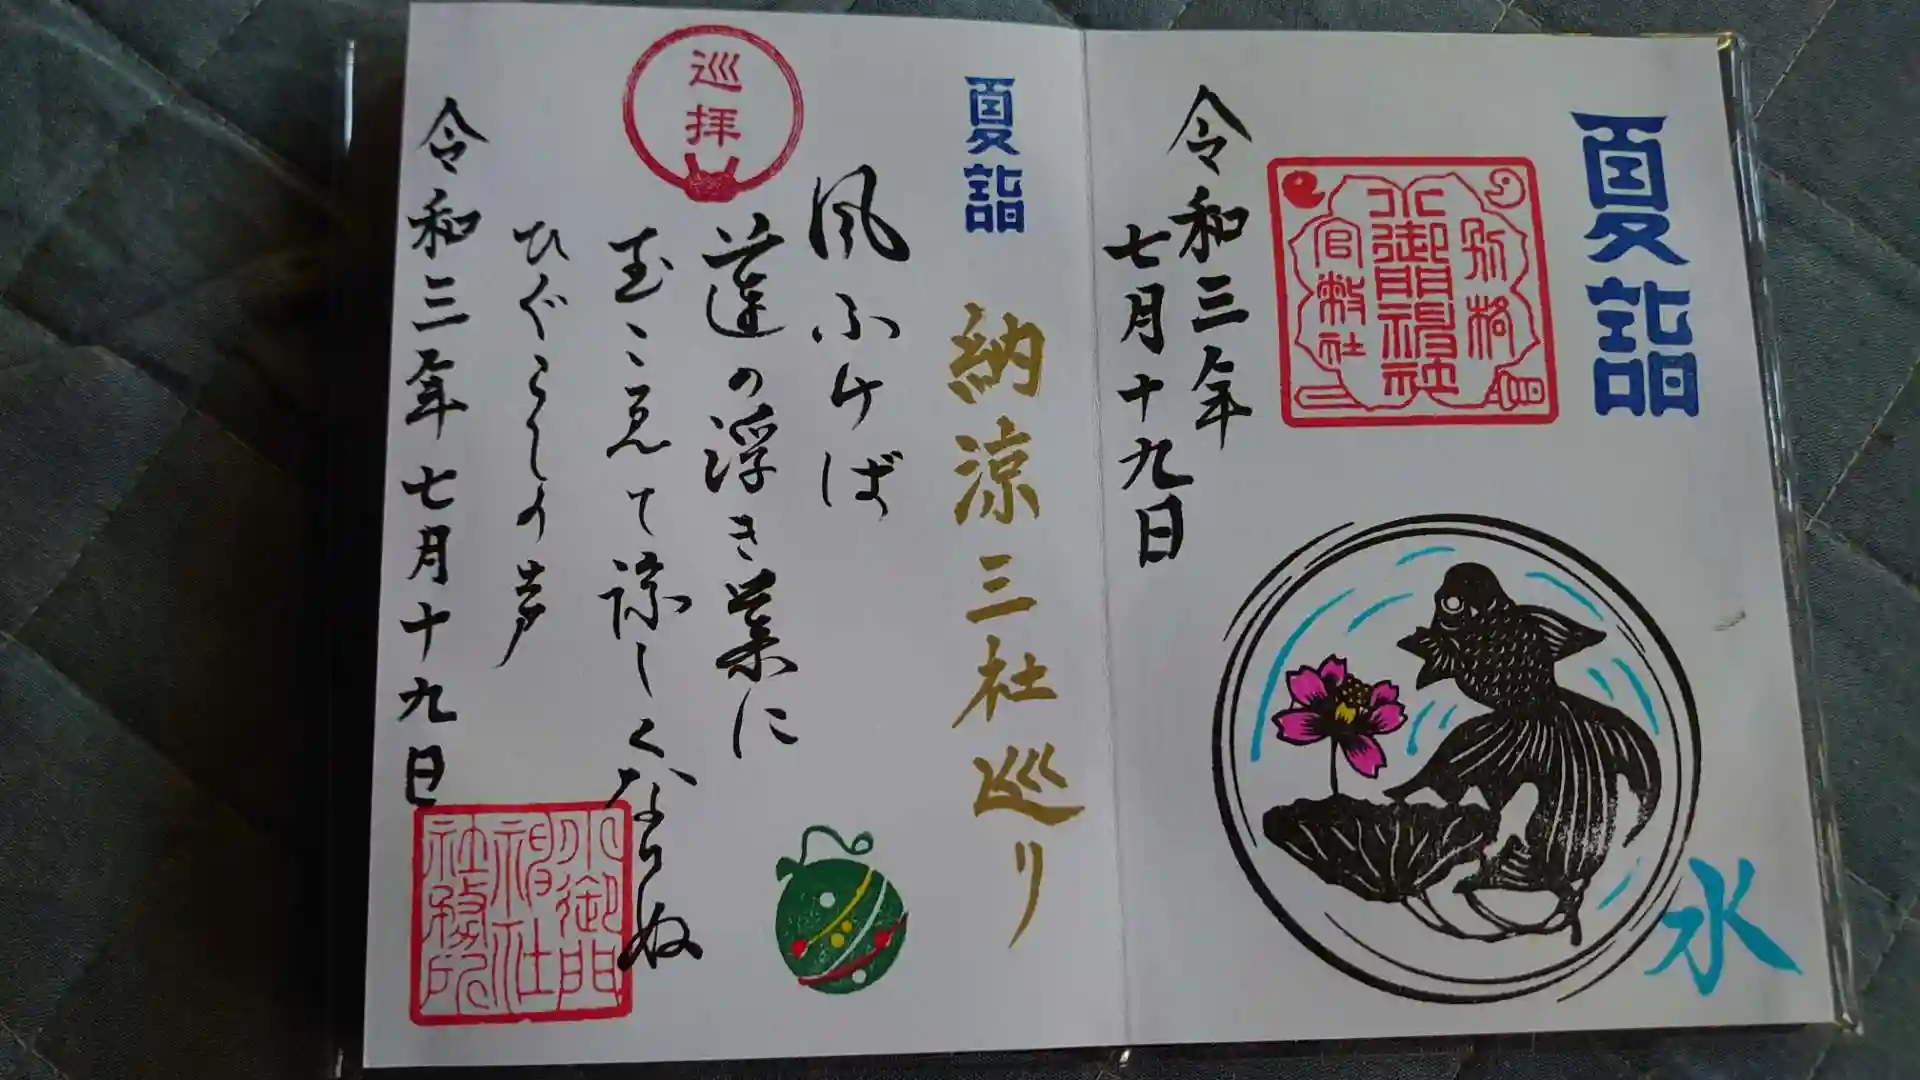 夏詣
別格
小御門神社
官幣社
令和三年
七月十九日
水
夏詣
納涼三社巡り
風ふけば
蓮の浮き葉に
玉こえて涼しくなりぬ
ひぐらしの声
巡拝
令和三年七月十九日
小御門
神社
社務所